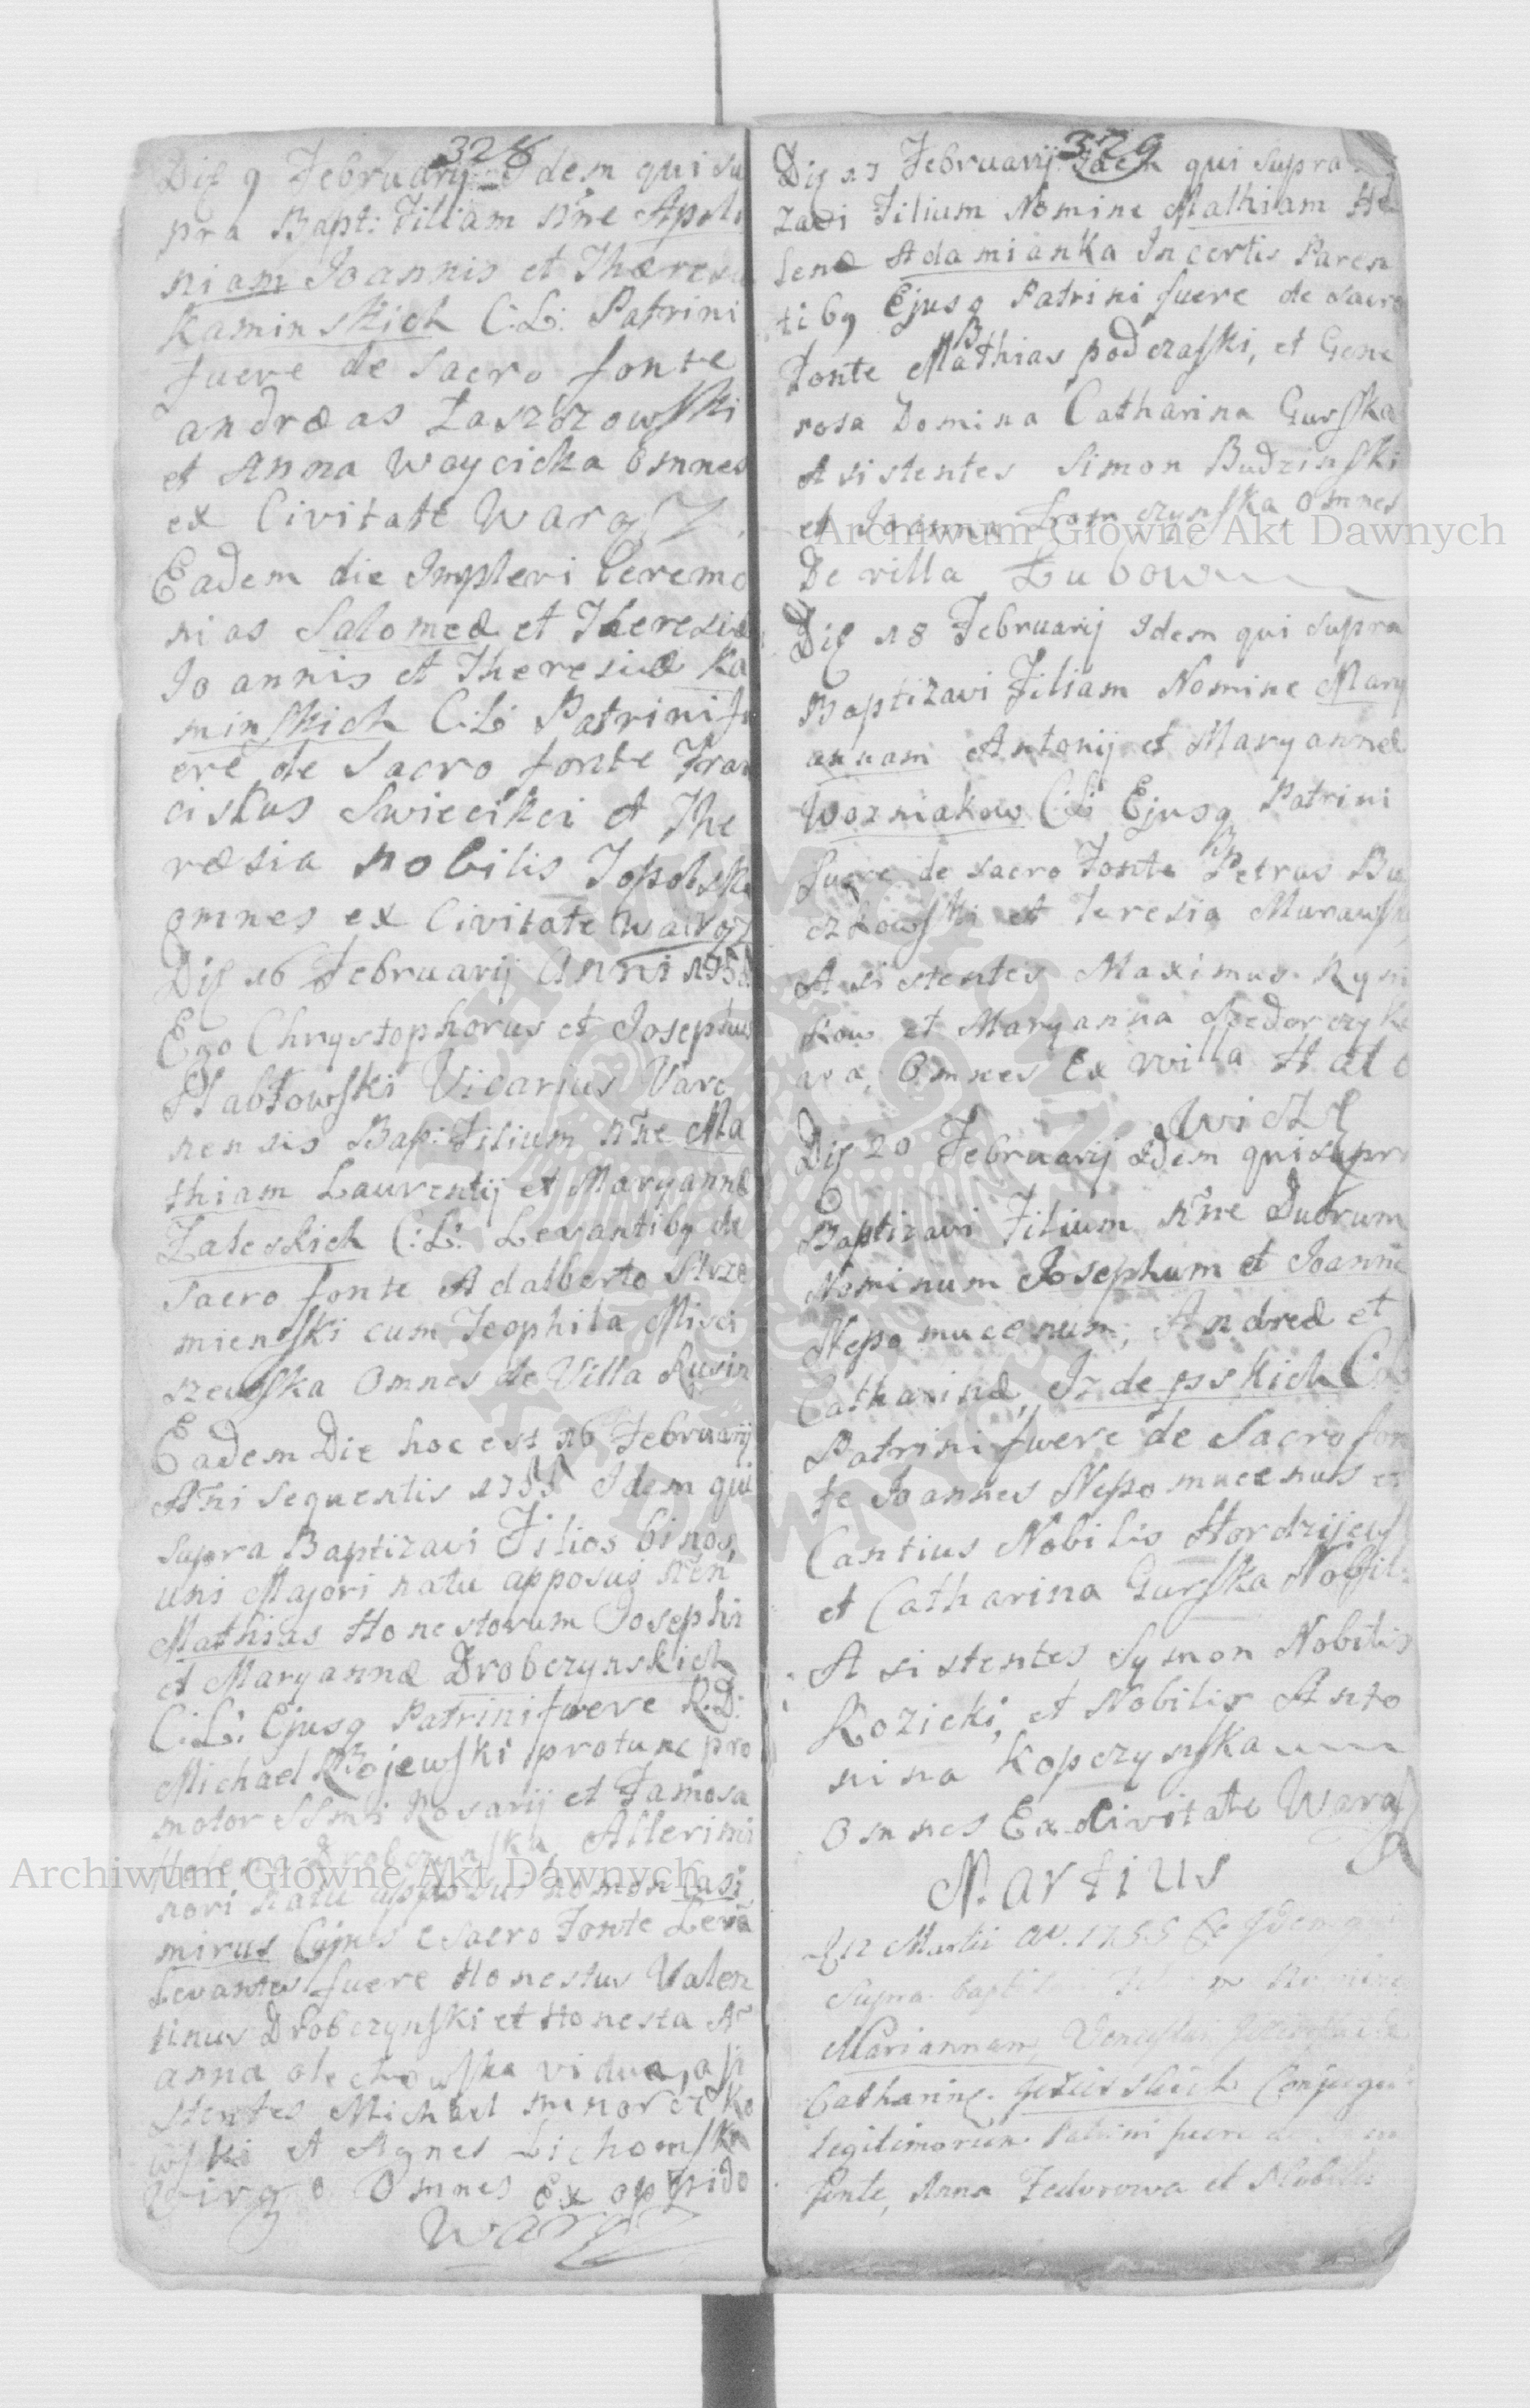 328
Die 9 Februarij Idem qui su
pra Bapt: Filiam nne Apolo
niam Joannis et Theresiæ
Kaminskich C:L: Patrini
fuere de sacro fonte
andræas Laszczowski
et Anna Woycicka omnes
ex Civitate Warg
Eadem die Implevi Ceremo
nias Salomeæ et Theresiæ
Joannis et Theresiæ Ka
minskich C:L: Patrini fu
ere de Sacro fonte Fran
ciskus Swiecikci et The
ræsia nobilis Topolska
omnes ex Civitate Warg
Die 16 Februarij Anni 1755
Ego Chrystophorus et Josephus
Vicarius Varc
nensis Bap: Filium nne Ma
thiam Laurentij et Maryannæ
Zaleskich C:L: Levantibq de
sacro fonte Adalberto Strze
mienski cum Teophila Misci
szewska Omnes de Villa Rusin
Eadem Die hoc est 16 Februarij
Ani sequentis 1755 Idem qui
supra Baptizavi Filios binos,
uni Majori natu apposui nen
Mathias Honestorum Josephi
et Maryannæ Drobczynskich
C:L: Ejusq Patrini fuere R:D:
Michael Rojewski protunc pro
motor SSmi Rosarij et Famosa
Drobczynska Alteri mi
nori natu apposui nomen Casi
mirus Cujus e sacro Fonte Leva
Levantes fuere Honestus Valen
tinus Drobczynski et Honesta A
anna olechowska vidua, assi
stentes Michael
wski et Agnes Lichowska
Virgo Omnes ex oppido
Warg
329
Die 17 Februarij Idem qui supra
zavi Filium Nomine Mathiam He
lenæ Adamianka Incertis Paren
tibq Ejusq Patrini fuere de sacro
Fonte Mathias podczaski, et Gene
rosa Domina Catharina Gurska
Asistentes Simon Budzinski
et Joanna omnes
De villa Lubow
Die 18 Februarij Idem qui supra
Baptizavi Filiam Nomine Mary
annam Antonij et Maryannæ
Wozniakow C:L: Ejusq Patrini
fuere de sacro Fonte Petrus Bu
czkowski et Teresia Murawska
Asistentes Maximus Kyni
kow et Maryanna Fedorczyko
wa, Omnes Ex villa Hato
wicze
Die 20 Februarij Idem qui supra
Baptizavi Filium nne Duorum
Nominum Josephum et Joanne
Nepomucenum, Andreæ et
Catharinæ, Izdepskich C:L:
Patrini fuere de Sacro fon
te Joannes Nepomucenus et
Cantius Nobilis
et Catharina Gurska Nobil:
Asistentes Symon Nobilis
Kozicki, et Nobilis Anto
nina Kopczynska
Omnes Ex Civitate Warg
Martius
D 12 Martii an. 1755 Idem qui
supra bapt Nomine
Mariannam,
Catharinæ Conjugu
legitimorum Patrini fuere de Sacro
fonte, Anna Fedorowa et Nobilis
Archiwum Główne Akt Dawnych
Archiwum Główne Akt Dawnych
ARCHIWUM GŁÓWNE AKT DAWNYCH